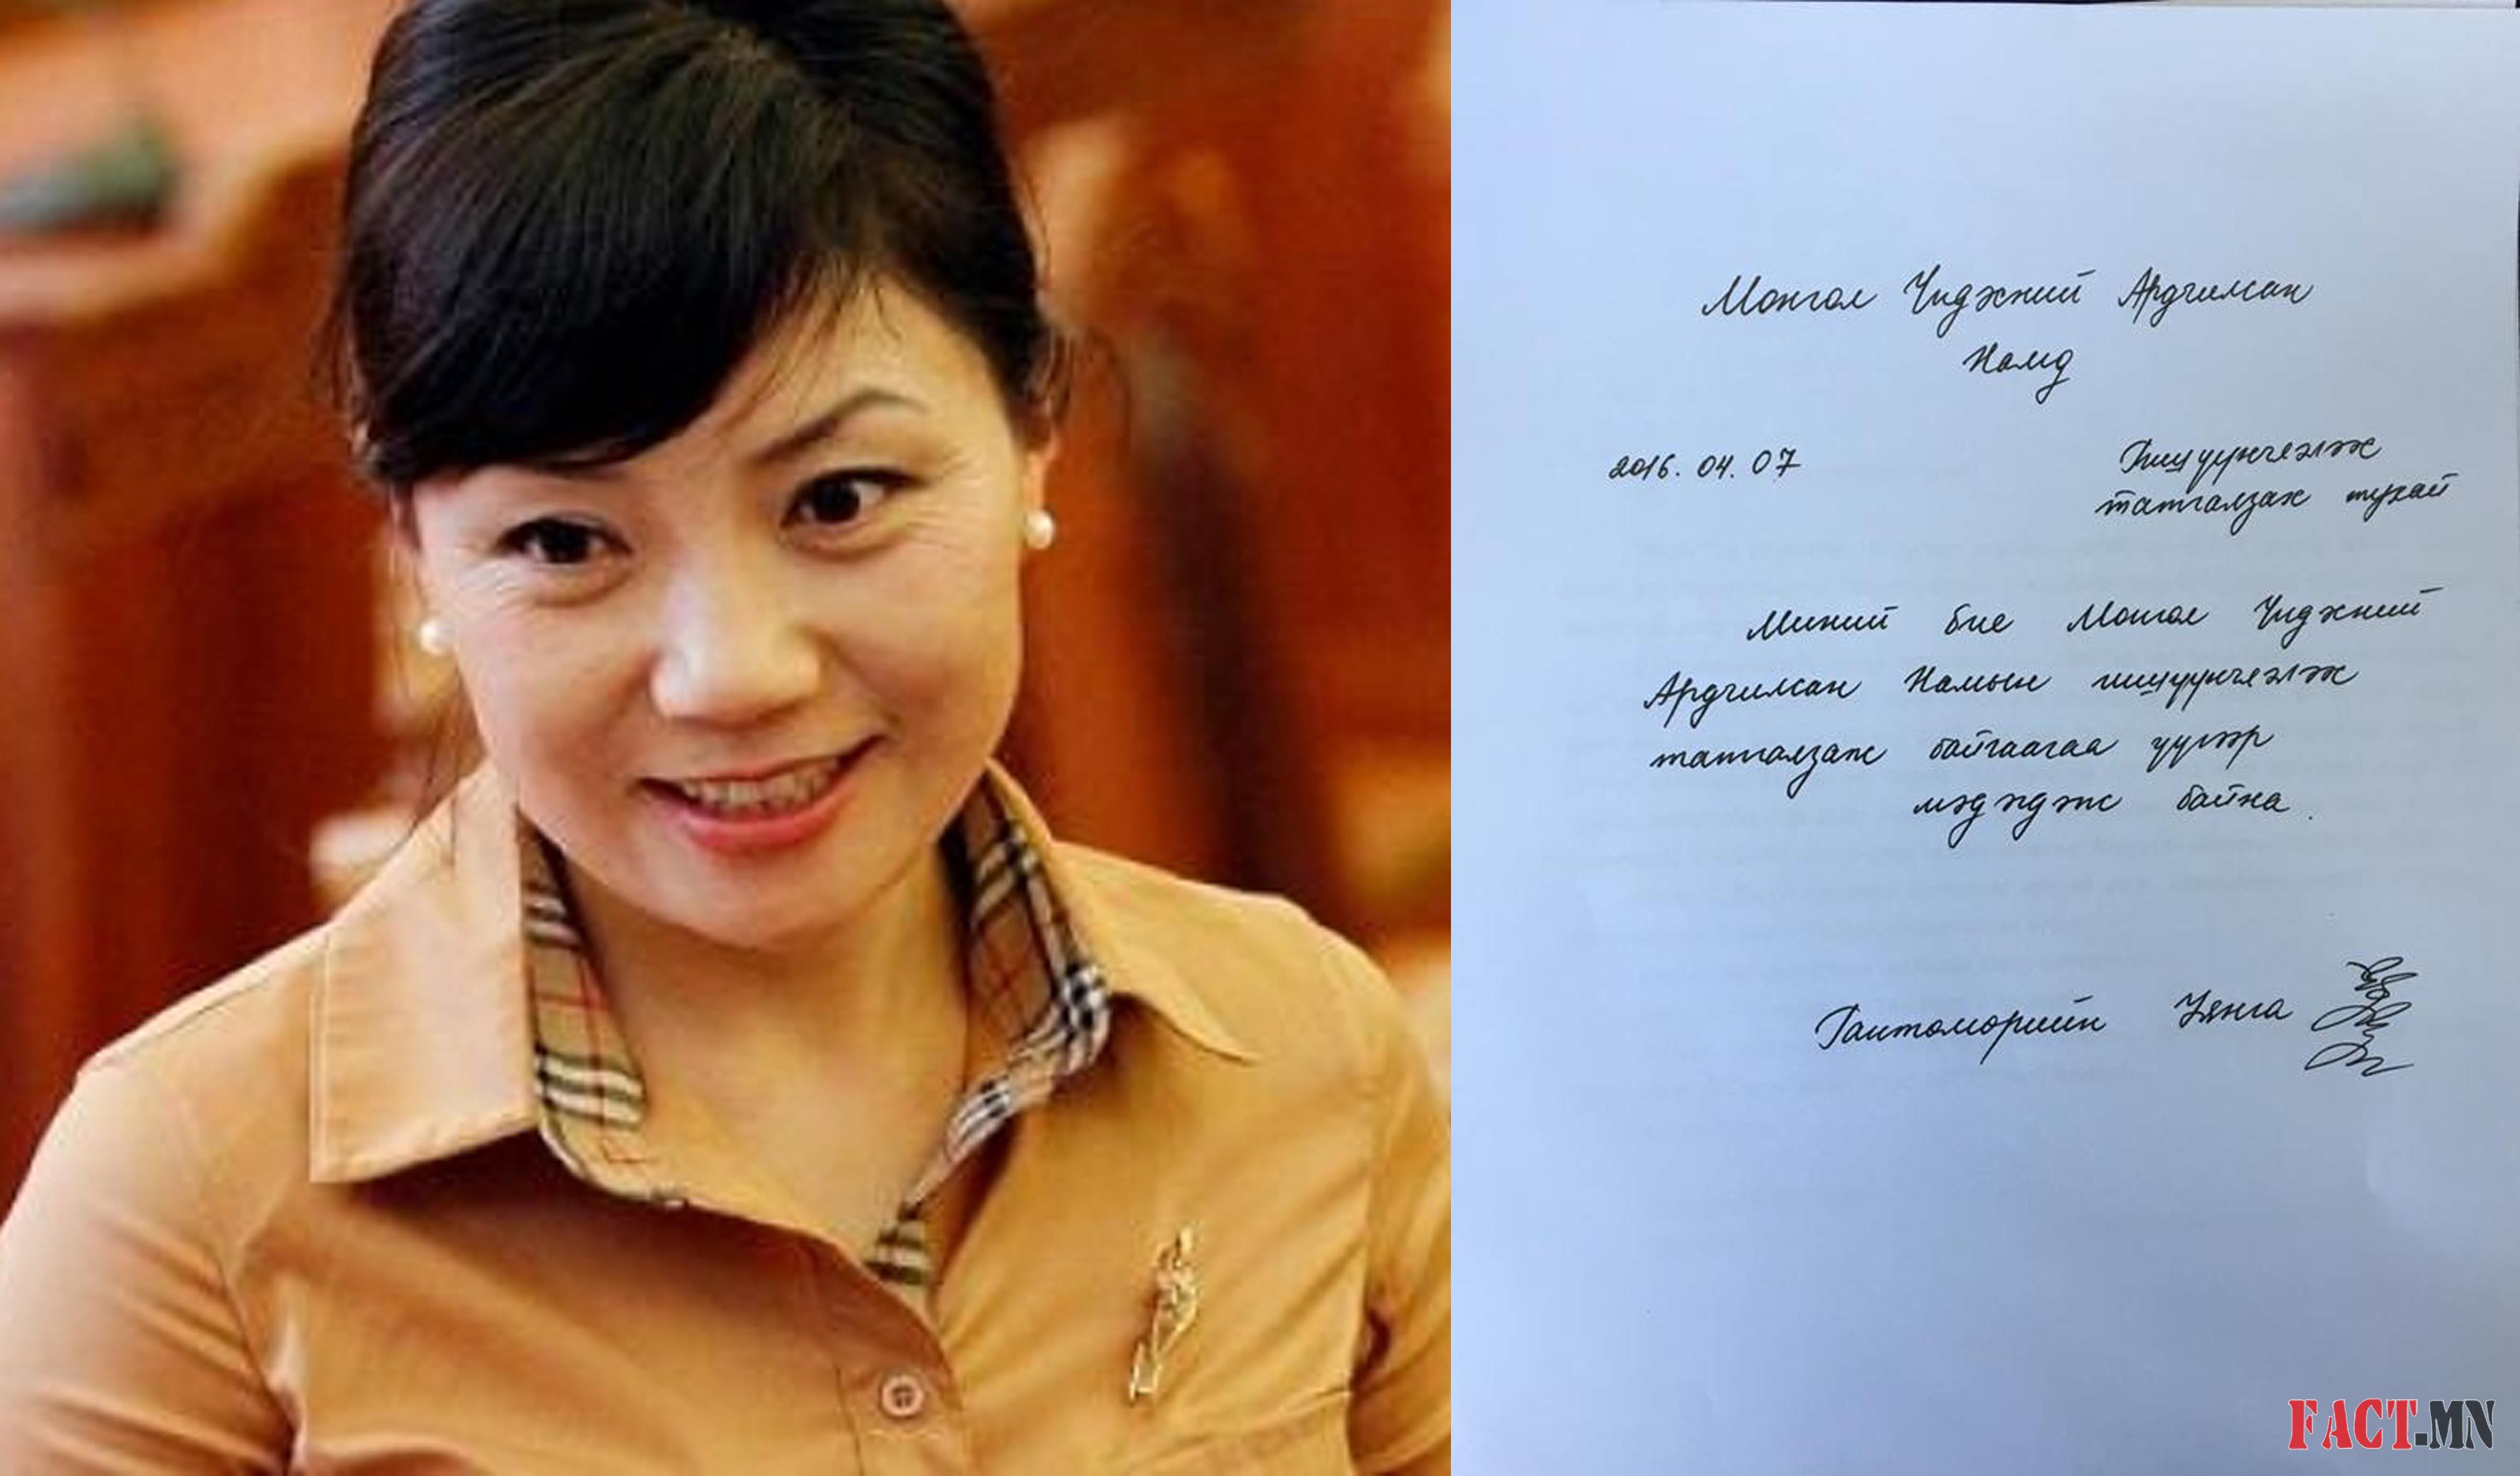 Монгол Үндэсний Ардчилсан
Намд
2016. 04. 07
Гишүүнчлэлээс
татгалзах тухай
Миний бие Монгол Үндэсний
Ардчилсан Намын гишүүнчлэлээс
татгалзаж байгаагаа үүгээр
мэдэгдэж байна.
Гантөмөрийн Уянга
FACT.MN